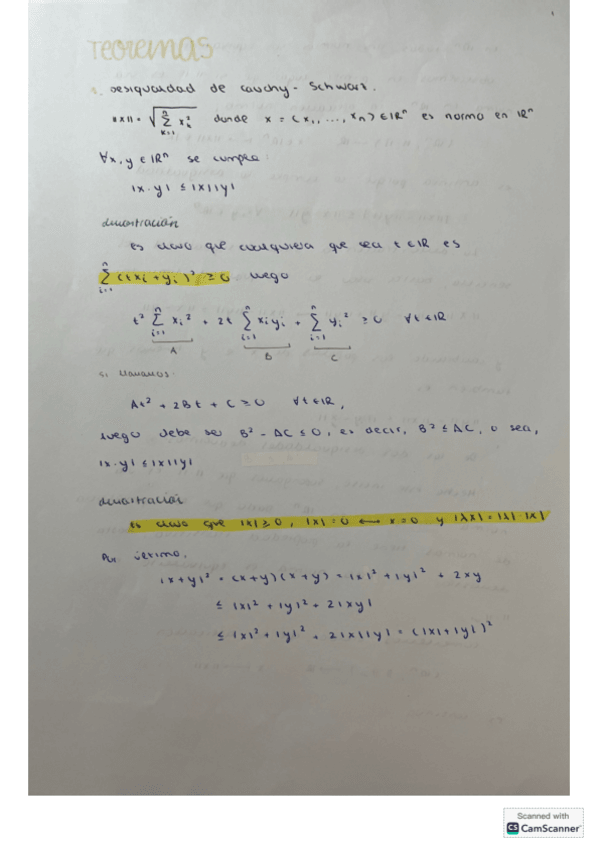 TEOREMAS
1. Desigualdad de Cauchy - Schwarz.
||x|| = √(∑_{k=1}^{n} x_k^2) donde x = (x_1, ..., x_n) ∈ ℝ^n es norma en ℝ^n
∀x, y ∈ ℝ^n se cumple:
|x · y| ≤ |x||y|
demostración
es claro que cualquiera que sea t ∈ ℝ es
∑_{i=1}^{n} (tx_i + y_i)^2 ≥ 0 luego
t^2 ∑_{i=1}^{n} x_i^2 + 2t ∑_{i=1}^{n} x_i y_i + ∑_{i=1}^{n} y_i^2 ≥ 0 ∀t ∈ ℝ
A B C
si llamamos:
At^2 + 2Bt + C ≥ 0 ∀t ∈ ℝ,
luego debe ser B^2 - AC ≤ 0, es decir, B^2 ≤ AC, o sea,
|x · y| ≤ |x||y|
demostración
es claro que |x| ≥ 0, |x| = 0 ⟷ x = 0 y |λx| = |λ| · |x|
Por último,
|x + y|^2 = (x + y)(x + y) = |x|^2 + |y|^2 + 2xy
≤ |x|^2 + |y|^2 + 2|xy|
≤ |x|^2 + |y|^2 + 2|x||y| = (|x| + |y|)^2
Scanned with
CS CamScanner